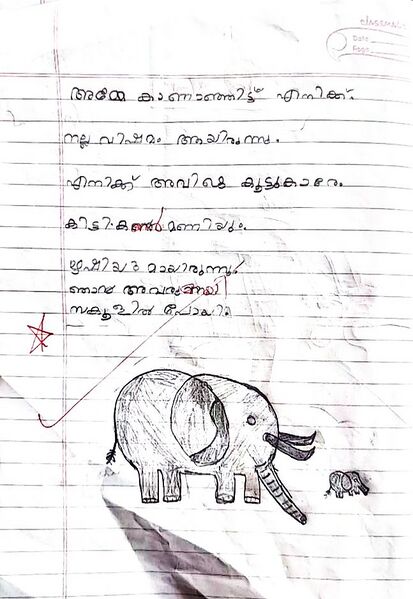 classmate
Date
Page
അമ്മേ കാണാഞ്ഞിട്ട് എനിക്ക്.
നല്ല വിഷമം ആയിരുന്നു.
എനിക്ക് അവിടെ കൂട്ടുകാരേ.
കിട്ടി. കൺമണിയും.
ഋഷിയു മായിരുന്നു.
ഞാൻ അവരുമായി
സ്കൂളിൽ പോയി.